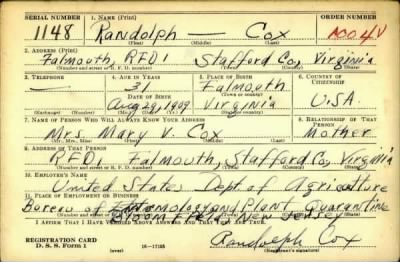 SERIAL NUMBER 1. NAME (Print) ORDER NUMBER
1148 Randolph — Cox
(First) (Middle) (Last)
2. ADDRESS (Print)
Falmouth, RFD1 Stafford Co, Virginia
(Number and street or R. F. D. number) (Town) (County) (State)
3. TELEPHONE 4. AGE IN YEARS 5. PLACE OF BIRTH 6. COUNTRY OF CITIZENSHIP
— 31 Falmouth
DATE OF BIRTH (Town or county)
Aug 29, 1909 Virginia U.S.A.
(Exchange) (Number) (Mo.) (Day) (Yr.) (State or country)
7. NAME OF PERSON WHO WILL ALWAYS KNOW YOUR ADDRESS 8. RELATIONSHIP OF THAT PERSON
Mrs. Mary V. Cox Mother
(Mr., Mrs., Miss) (First) (Middle) (Last)
9. ADDRESS OF THAT PERSON
RFD1 Falmouth, Stafford Co, Virginia
(Number and street or R. F. D. number) (Town) (County) (State)
10. EMPLOYER'S NAME
United States Dept. of Agriculture
11. PLACE OF EMPLOYMENT OR BUSINESS
Bureau of Entomology and Plant Quarantine
Bloomfield New Jersey
I AFFIRM THAT I HAVE VERIFIED ABOVE ANSWERS AND THAT THEY ARE TRUE.
REGISTRATION CARD
D. S. S. Form 1 (over) Randolph Cox